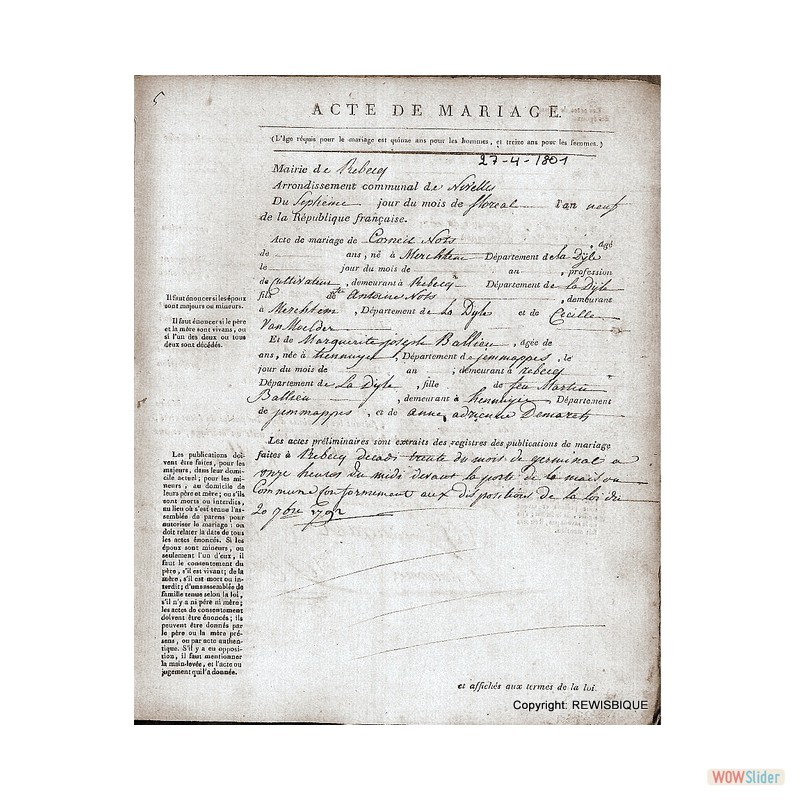 5
ACTE DE MARIAGE.
(L'âge réquis pour le mariage est quinze ans pour les hommes, et treize ans pour les femmes.)
27-4-1801
Mairie de Rebecq
Arrondissement communal de Nivelles
Du Septième jour du mois de floreal l'an neuf
de la République française.
Acte de mariage de Corneil Nots, âgé
de ans, né à Merchtem Département de la Dÿle
le jour du mois de an, profession
de Cultivateur, demeurant à Rebecq Département de la Dÿle
fils de Antoine Nots, demeurant
à Merchtem, Département de La Dyle et de Cecille
VanMoelder
Et de Marguerite joseph Ballieu, agée de
ans, née à hennuyer, Département de jemmappes, le
jour du mois de an; demeurant à rebecq
Département de La Dyle, fille de feu Martin
Ballieu, demeurant à hennuyer Département
de jemmappes, et de anne adrienne Demaret
Il faut énoncer si les époux
sont majeurs ou mineurs.
Il faut énoncer si le père
et la mère sont vivans, ou
si l'un des deux ou tous
deux sont décédés.
Les actes préliminaires sont extraits des registres des publications de mariage
faites à Rebecq decadi trente du mois de germinal a
onze heures du midi devant la porte de la maison
Commune conformement aux dispositions de la loi du
20 7bre 1792
Les publications doi-
vent être faites, pour les
majeurs, dans leur domi-
cile actuel; pour les mi-
neurs, au domicile de
leurs père et mère; ou s'ils
sont morts ou interdits,
au lieu où s'est tenue l'as-
semblée de parens pour
autoriser le mariage: on
doit relater la date de tous
les actes énoncés. Si les
époux sont mineurs, ou
seulement l'un d'eux, il
faut le consentement du
père, s'il est vivant; de la
mère, s'il est mort ou in-
terdit; d'une assemblée de
famille tenue selon la loi,
s'il n'y a ni père ni mère;
les actes de consentement
doivent être énoncés; ils
peuvent être donnés par
le père ou la mère pré-
sens, ou par acte authen-
tique. S'il y a eu opposi-
tion, il faut mentionner
la main-levée, et l'acte ou
jugement qui l'a donnée.
et affichés aux termes de la loi.
Copyright: REWISBIQUE
WOWSlider